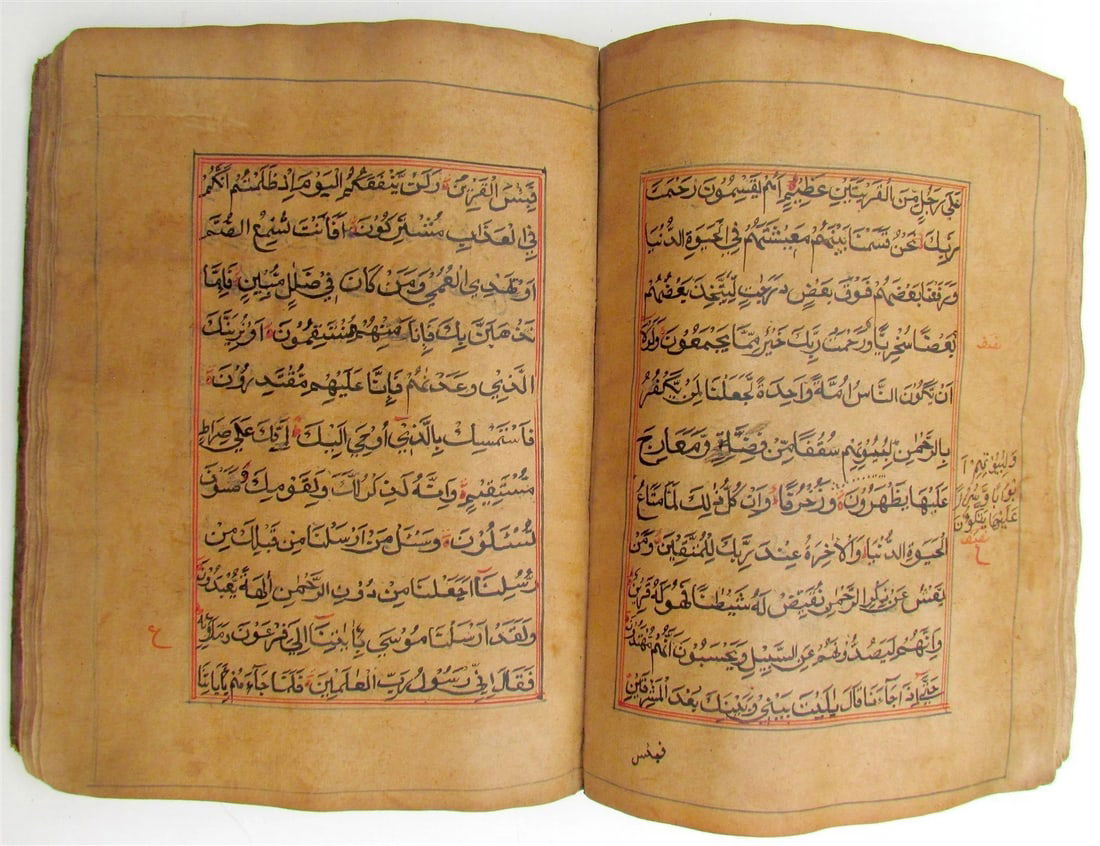 عَلٰى رَجُلٍ مِنَ الْقَرْيَتَيْنِ عَظِيمٍ اَهُمْ يَقْسِمُونَ رَحْمَتَ
رَبِّكَ نَحْنُ قَسَمْنَا بَيْنَهُمْ مَعِيشَتَهُمْ فِي الْحَيٰوةِ الدُّنْيَا
وَرَفَعْنَا بَعْضَهُمْ فَوْقَ بَعْضٍ دَرَجٰتٍ لِيَتَّخِذَ بَعْضُهُمْ
بَعْضًا سُخْرِيًّا وَرَحْمَتُ رَبِّكَ خَيْرٌ مِمَّا يَجْمَعُونَ وَلَوْلَا
اَنْ يَكُونَ النَّاسُ اُمَّةً وَاحِدَةً لَجَعَلْنَا لِمَنْ يَكْفُرُ
بِالرَّحْمٰنِ لِبُيُوتِهِمْ سُقُفًا مِنْ فِضَّةٍ وَمَعَارِجَ
عَلَيْهَا يَظْهَرُونَ وَزُخْرُفًا وَاِنْ كُلُّ ذٰلِكَ لَمَّا مَتَاعُ
الْحَيٰوةِ الدُّنْيَا وَالْاٰخِرَةُ عِنْدَ رَبِّكَ لِلْمُتَّقِينَ وَمَنْ
يَعْشُ عَنْ ذِكْرِ الرَّحْمٰنِ نُقَيِّضْ لَهُ شَيْطٰنًا فَهُوَ لَهُ قَرِينٌ
وَاِنَّهُمْ لَيَصُدُّونَهُمْ عَنِ السَّبِيلِ وَيَحْسَبُونَ اَنَّهُمْ مُهْتَدُونَ
حَتّٰى اِذَا جَاءَنَا قَالَ يٰلَيْتَ بَيْنِي وَبَيْنَكَ بُعْدَ الْمَشْرِقَيْنِ
وَلِبُيُوتِهِمْ اَ
بْوَابًا وَسُرُرًا
عَلَيْهَا يَتَّكِئُونَ
ع
فبئس
فَبِئْسَ الْقَرِينُ وَلَنْ يَنْفَعَكُمُ الْيَوْمَ اِذْ ظَلَمْتُمْ اَنَّكُمْ
فِي الْعَذَابِ مُشْتَرِكُونَ اَفَاَنْتَ تُسْمِعُ الصُّمَّ
اَوْ تَهْدِي الْعُمْيَ وَمَنْ كَانَ فِي ضَلٰلٍ مُبِينٍ فَاِمَّا
نَذْهَبَنَّ بِكَ فَاِنَّا مِنْهُمْ مُنْتَقِمُونَ اَوْ نُرِيَنَّكَ
الَّذِي وَعَدْنٰهُمْ فَاِنَّا عَلَيْهِمْ مُقْتَدِرُونَ
فَاسْتَمْسِكْ بِالَّذِي اُوحِيَ اِلَيْكَ اِنَّكَ عَلٰى صِرَاطٍ
مُسْتَقِيمٍ وَاِنَّهُ لَذِكْرٌ لَكَ وَلِقَوْمِكَ وَسَوْفَ
تُسْئَلُونَ وَسْئَلْ مَنْ اَرْسَلْنَا مِنْ قَبْلِكَ مِنْ
رُسُلِنَا اَجَعَلْنَا مِنْ دُونِ الرَّحْمٰنِ اٰلِهَةً يُعْبَدُونَ
وَلَقَدْ اَرْسَلْنَا مُوسٰى بِاٰيٰتِنَا اِلٰى فِرْعَوْنَ وَمَلَائِهِ
فَقَالَ اِنِّي رَسُولُ رَبِّ الْعٰلَمِينَ فَلَمَّا جَاءَهُمْ بِاٰيَاتِنَا
ع